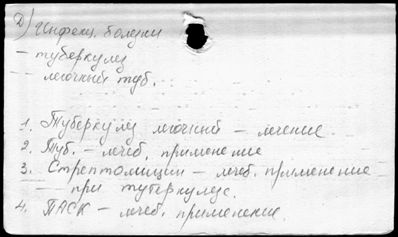 Д) Инфекц. болезни
— туберкулез
— легочный туб.
1. Туберкулез легочный — лечение.
2. Туб. — лечеб. применение
3. Стрептомицин — лечеб. применение
— при туберкулезе.
4. ПАСК — лечеб. применение.